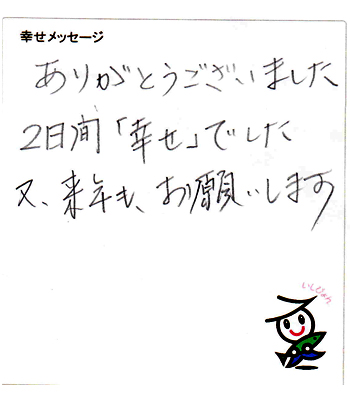 幸せメッセージ
ありがとうございました
2日間「幸せ」でした
又、来年も、お願いします